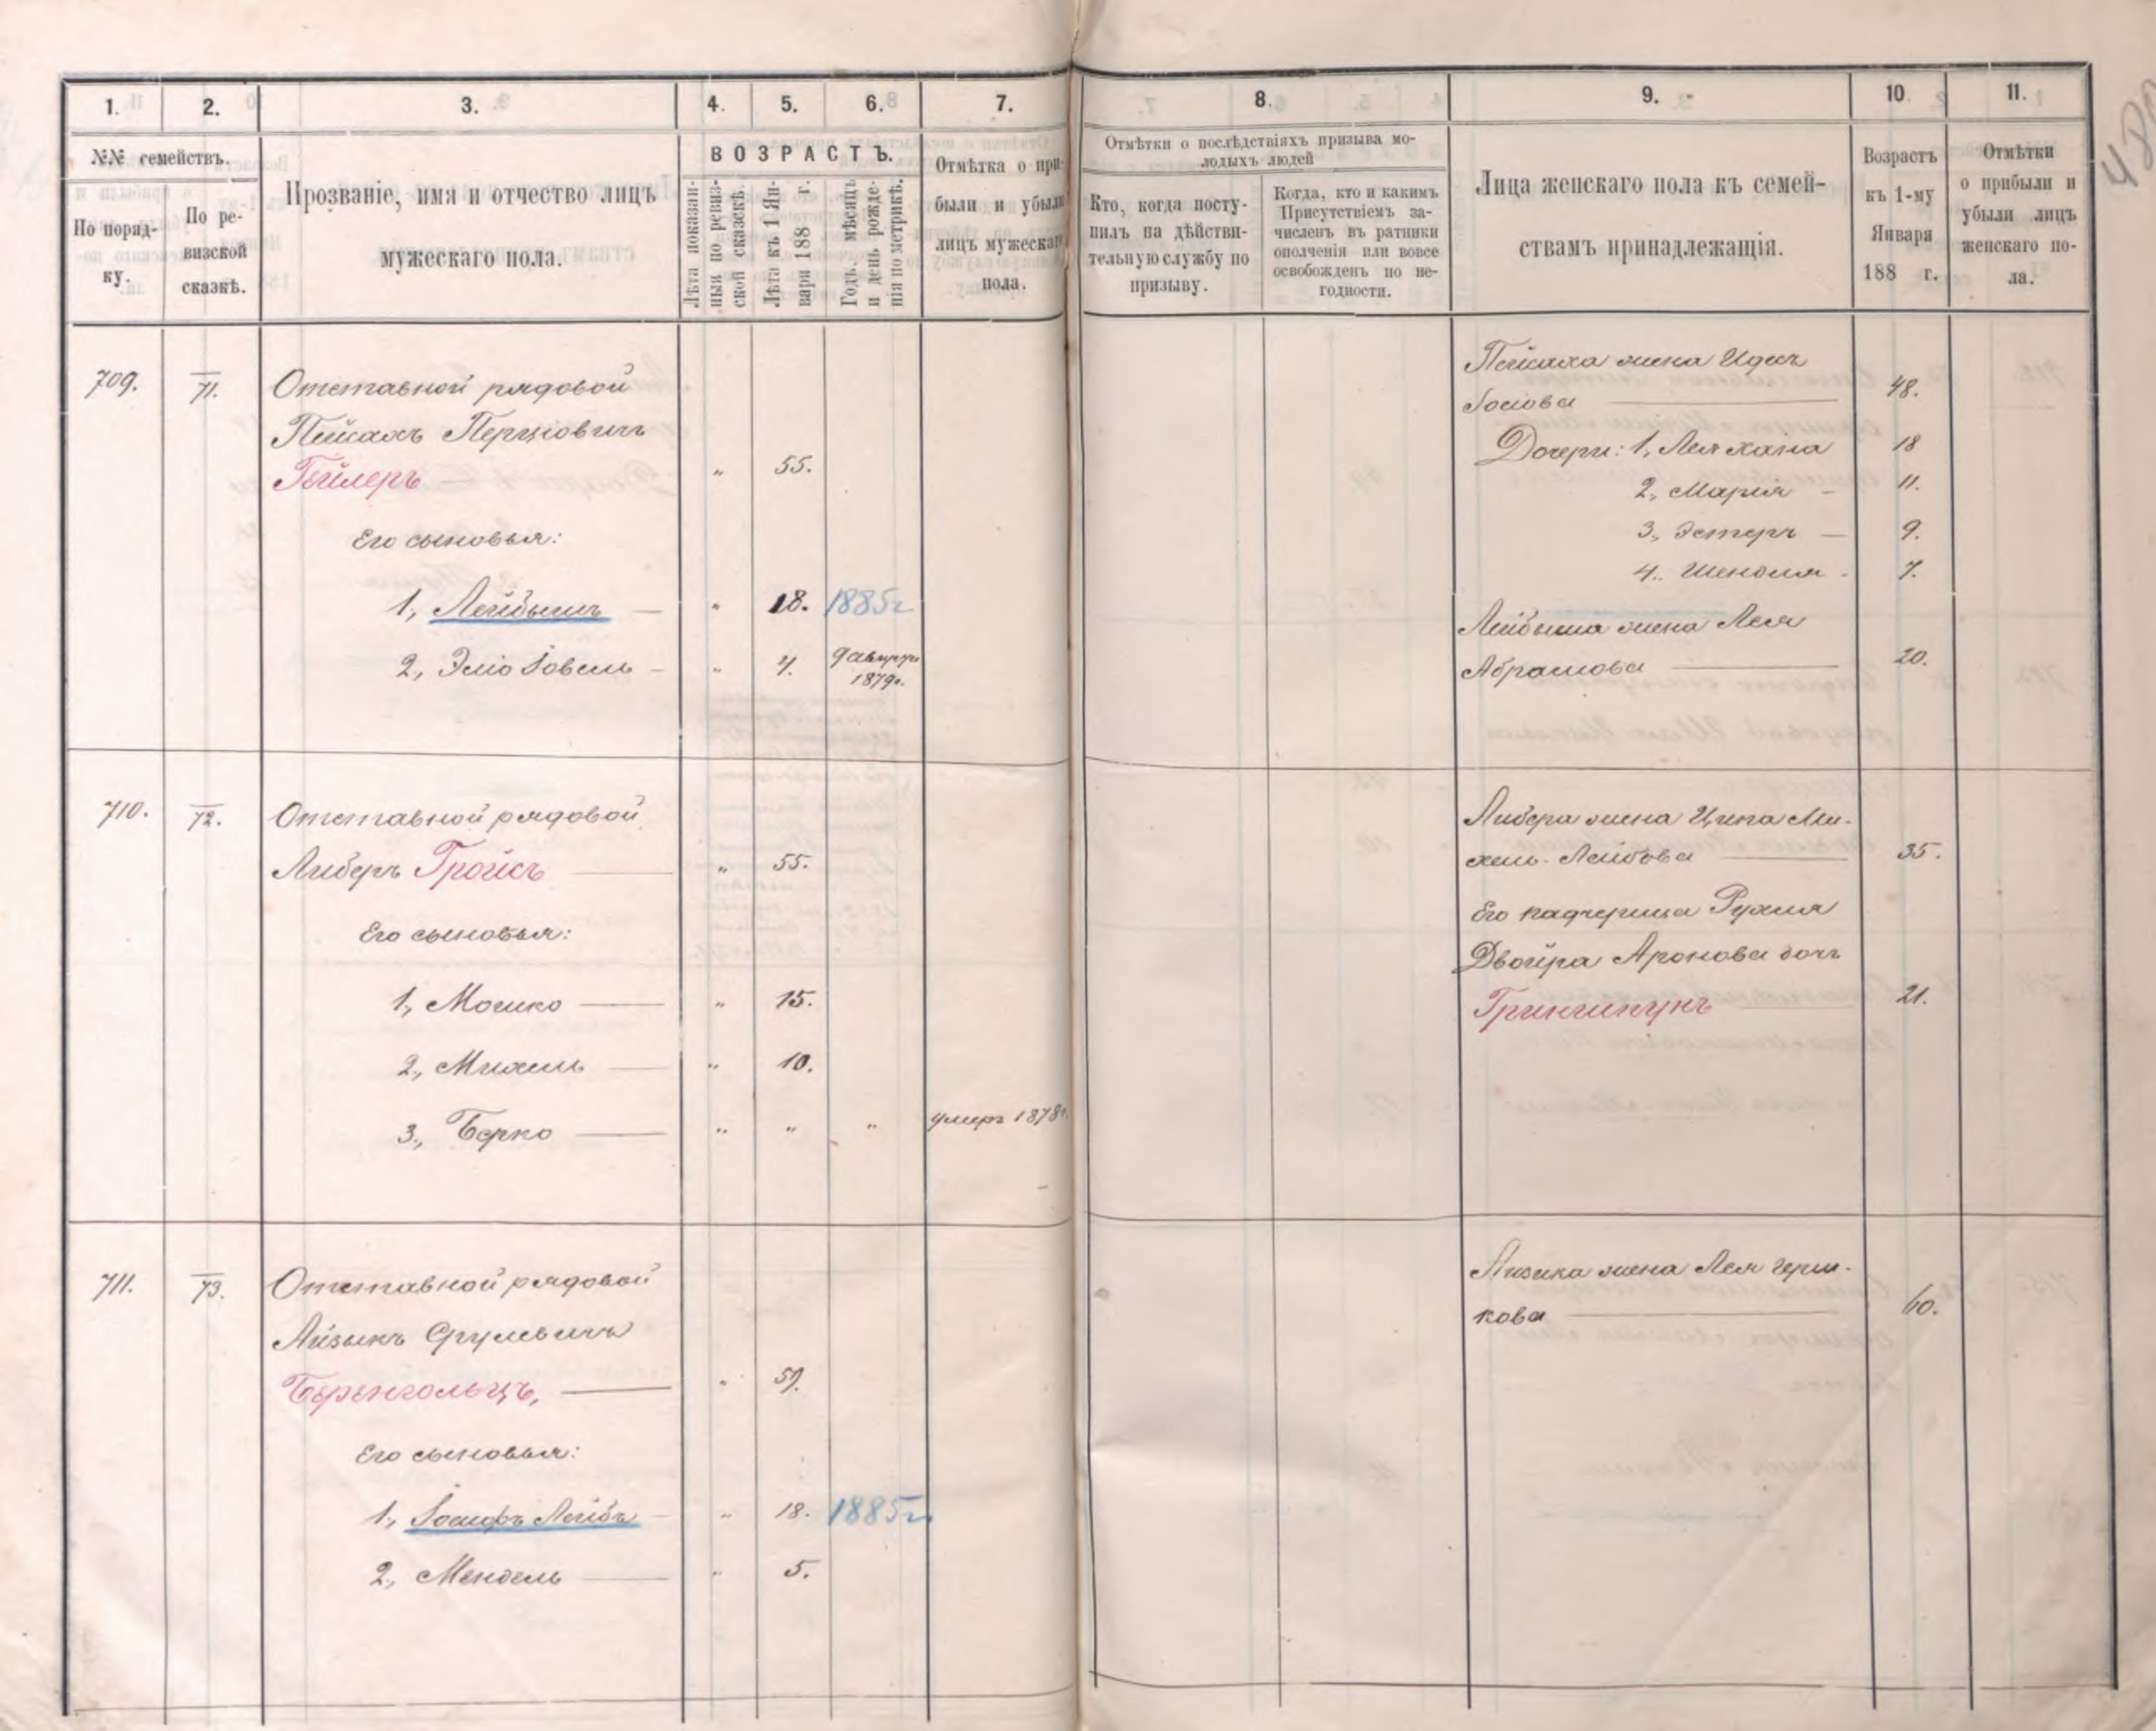 1.
2.
3.
4.
5.
6.
7.
8.
9.
10
11.
№№ семействъ.
По поряд-
ку.
По ре-
визской
сказкѣ.
Прозваніе, имя и отчество лицъ
мужескаго пола.
ВОЗРАСТЪ.
Лѣта показан-
ныя по ревиз-
ской сказкѣ.
Лѣта къ 1 Ян-
варя 188 г.
Годъ, мѣсяцъ
и день рожде-
нія по метрикѣ.
Отмѣтка о при-
были и убыли
лицъ мужескаго
пола.
Отмѣтки о послѣдствіяхъ призыва мо-
лодыхъ людей
Кто, когда посту-
пилъ на дѣйстви-
тельную службу по
призыву.
Когда, кто и какимъ
Присутствіемъ за-
численъ въ ратники
ополченія или вовсе
освобожденъ по не-
годности.
Лица женскаго пола къ семей-
ствамъ принадлежащія.
Возрастъ
къ 1-му
Января
188 г.
Отмѣтки
о прибыли и
убыли лицъ
женскаго по-
ла.
709.
71.
Отставной рядовой
Пейсахъ Перцовичъ
Гейлеръ „ 55.
Его сыновья:
1, Лейбышъ — „ 18. 1885г
2, Эліо Іовель — „ 4. 9
1879г.
Пейсаха жена Идесъ
Іосіова — 48.
Дочери: 1, Лея Хана 18
2, Марія — 11.
3, Эстеръ — 9.
4, Шендля - 7.
Лейбыша жена Лея
Абрамова — 20.
710.
72.
Отставной рядовой
Либеръ Гройсъ — „ 55.
Его сыновья:
1, Мошко — „ 15.
2, Михель — „ 10.
3, Берко — „ „ „ умеръ 1878г.
Либера жена Ципа Ми-
хель-Лейбова — 35.
Его падчерица Рухля
Двойра Аронова дочь
Гриншпунъ — 21.
711.
73.
Отставной рядовой
Айзыкъ Срулевичъ
Беренгольцъ, — „ 59.
Его сыновья:
1, Іосифъ Лейбъ — „ 18. 1885г
2, Мендель — „ 5.
Айзика жена Лея Герш-
кова — 60.